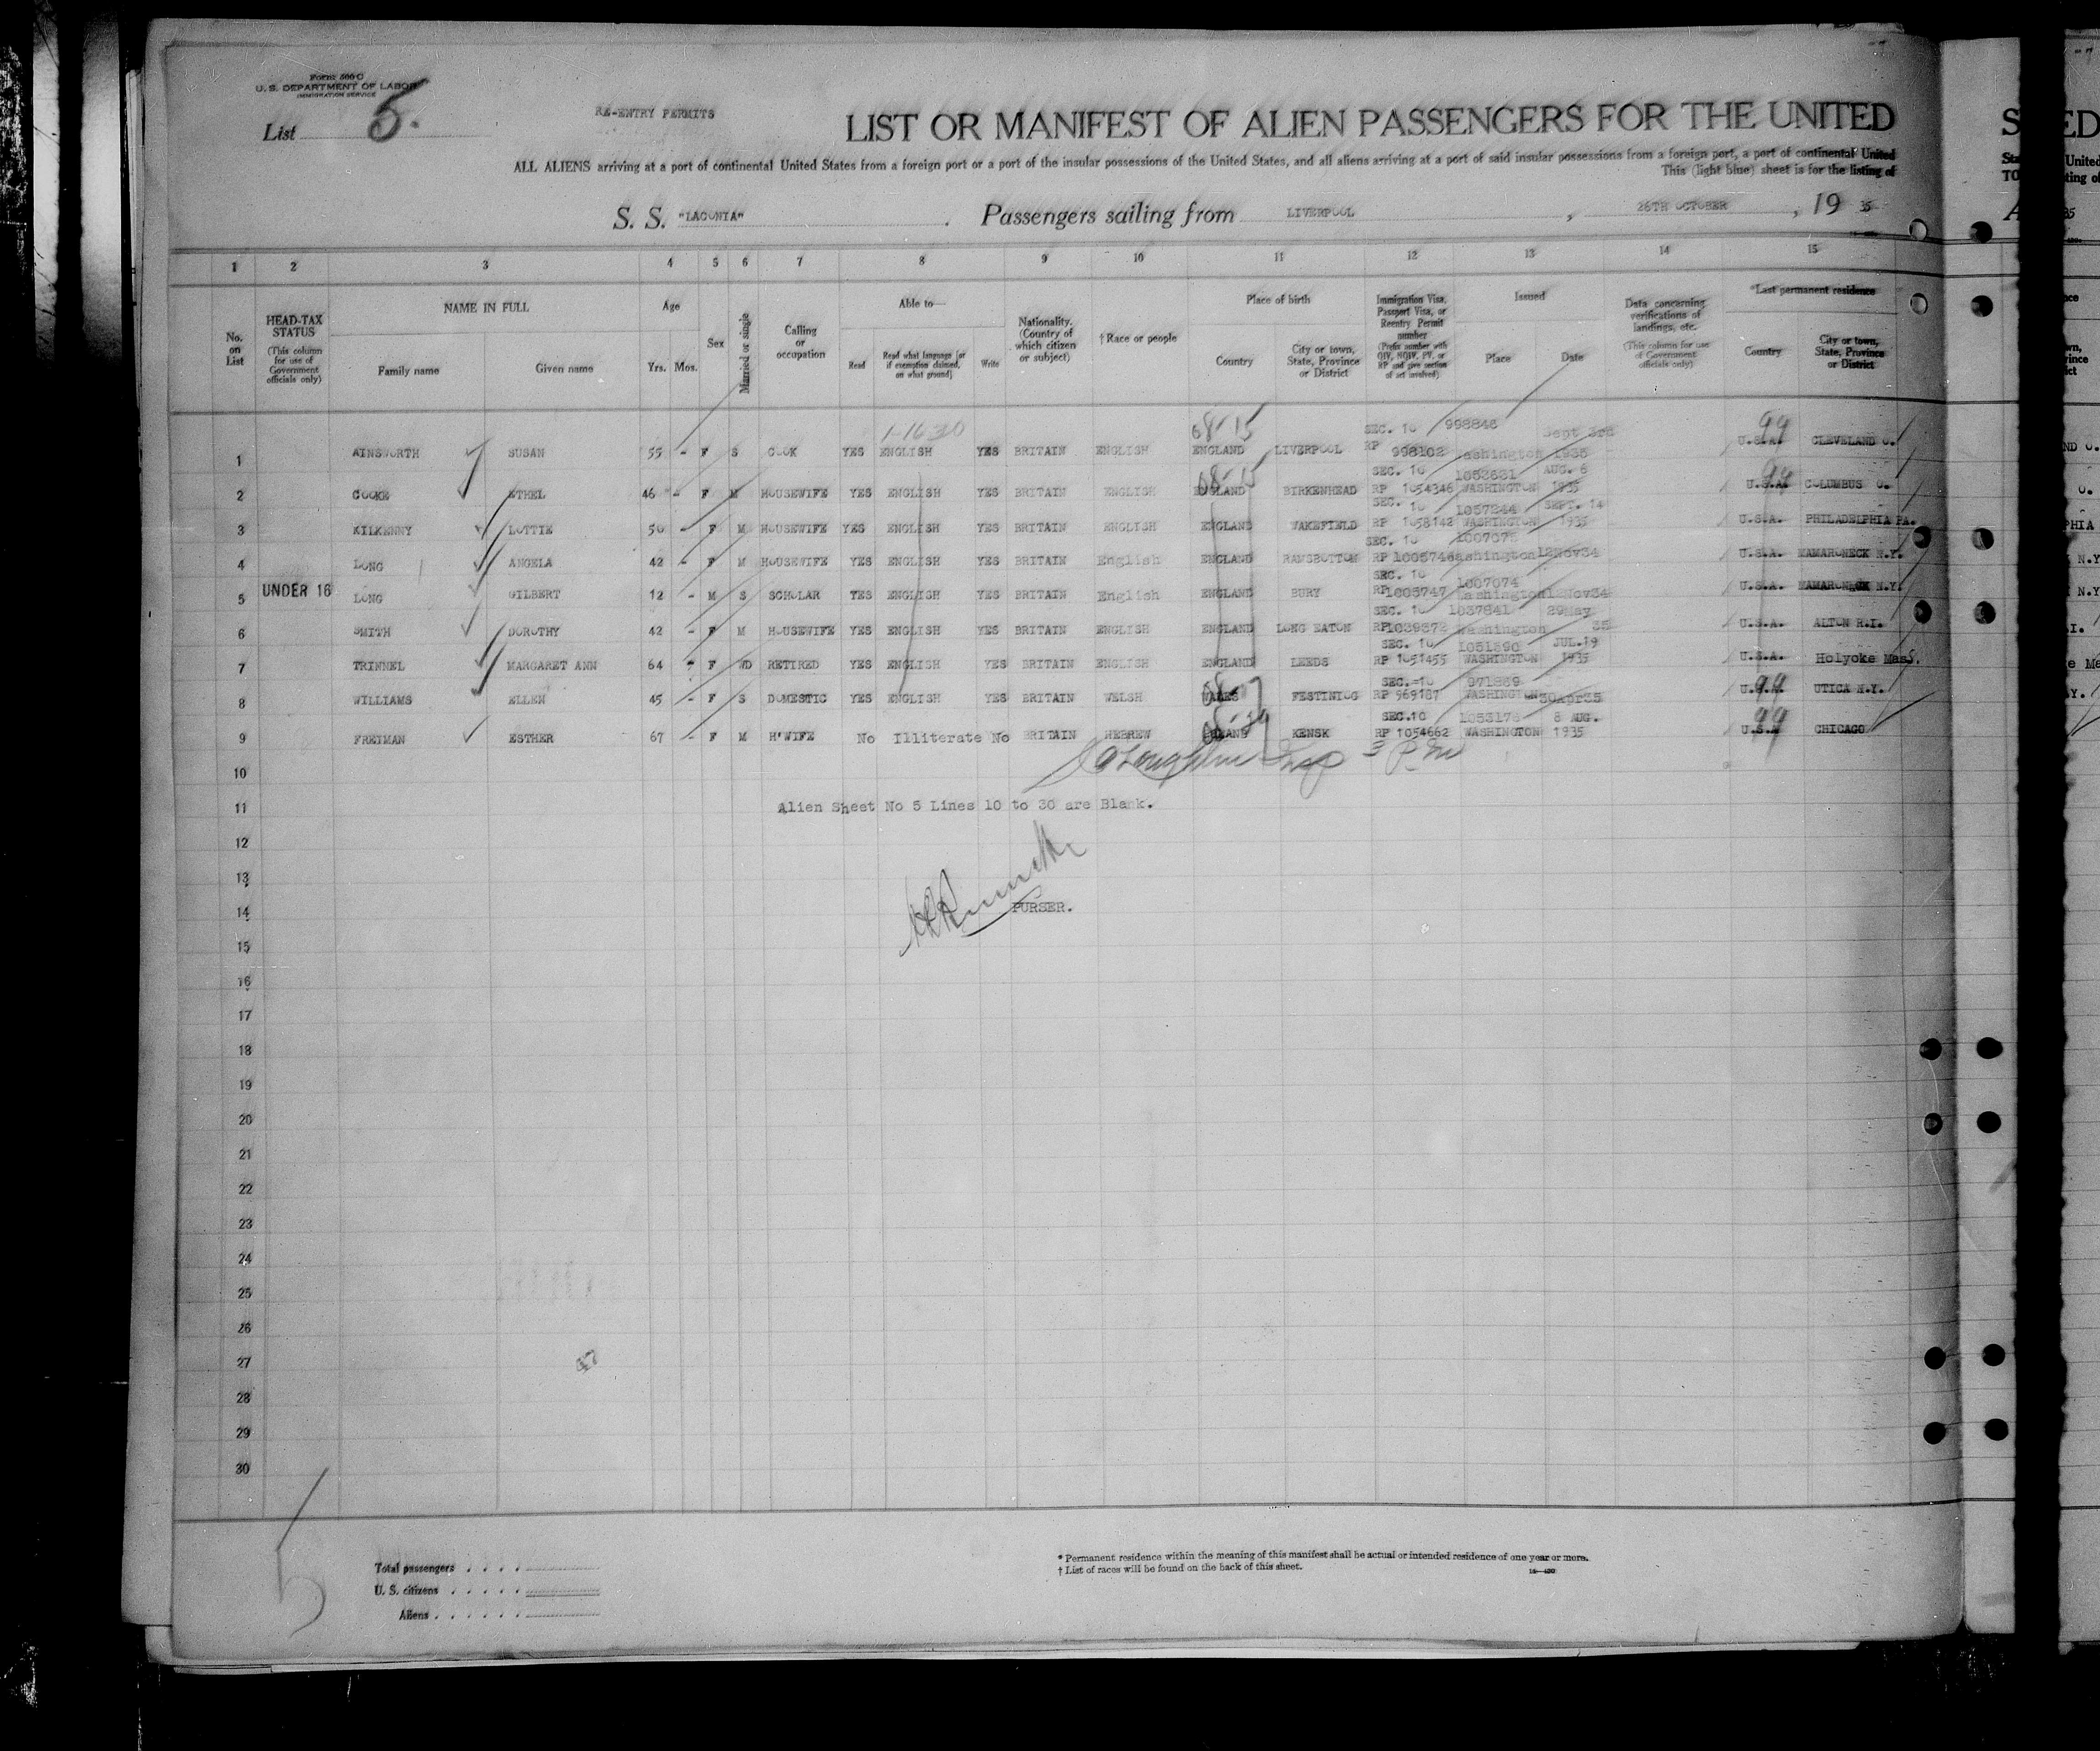 Form 500 C
U. S. DEPARTMENT OF LABOR
IMMIGRATION SERVICE
List 5.
RE-ENTRY PERMITS
LIST OR MANIFEST OF ALIEN PASSENGERS FOR THE UNITED
ALL ALIENS arriving at a port of continental United States from a foreign port or a port of the insular possessions of the United States, and all aliens arriving at a port of said insular possessions from a foreign port, a port of continental United
This (light blue) sheet is for the listing of
S. S. "LACONIA" . Passengers sailing from LIVERPOOL , 26TH OCTOBER , 19 35
1 2 3 4 5 6 7 8 9 10 11 12 13 14 15
No. on List
HEAD-TAX STATUS (This column for use of Government officials only)
NAME IN FULL Family name Given name
Age Yrs. Mos.
Sex
Married or single
Calling or occupation
Able to— Read Read what language [or if exemption claimed, on what ground] Write
Nationality. (Country of which citizen or subject)
†Race or people
Place of birth Country City or town, State, Province or District
Immigration Visa, Passport Visa, or Reentry Permit number (Prefix number with QIV, NQIV, PV, or RP and give section of act involved)
Issued Place Date
Data concerning verifications of landings, etc. (This column for use of Government officials only)
*Last permanent residence Country City or town, State, Province or District
1-16-30 68-15 SEC. 10 998846 Sept 3rd 99
1 AINSWORTH SUSAN 55 - F S COOK YES ENGLISH YES BRITAIN ENGLISH ENGLAND LIVERPOOL RP 998102 Washington 1935 U.S.A. CLEVELAND O.
68-15 SEC. 10 1053631 AUG. 6 99
2 COOKE ETHEL 46 - F M HOUSEWIFE YES ENGLISH YES BRITAIN ENGLISH ENGLAND BIRKENHEAD RP 1054346 WASHINGTON 1935 U.S.A. COLUMBUS O.
SEC. 10 1057244 SEPT. 14
3 KILKENNY LOTTIE 50 - F M HOUSEWIFE YES ENGLISH YES BRITAIN ENGLISH ENGLAND WAKEFIELD RP 1058142 WASHINGTON 1935 U.S.A. PHILADELPHIA PA.
SEC. 10 1007075
4 LONG ANGELA 42 - F M HOUSEWIFE YES ENGLISH YES BRITAIN English ENGLAND RAMSBOTTOM RP 1005746 Washington 12Nov34 U.S.A. MAMARONECK N.Y.
SEC. 10 1007074
5 UNDER 16 LONG GILBERT 12 - M S SCHOLAR YES ENGLISH YES BRITAIN English ENGLAND BURY RP 1005747 Washington 12Nov34 U.S.A. MAMARONECK N.Y.
SEC. 10 1037841 29May
6 SMITH DOROTHY 42 - F M HOUSEWIFE YES ENGLISH YES BRITAIN ENGLISH ENGLAND LONG EATON RP1039372 Washington 35 U.S.A. ALTON R.I.
SEC. 10 1051590 JUL.19
7 TRINNEL MARGARET ANN 64 - F WD RETIRED YES ENGLISH YES BRITAIN ENGLISH ENGLAND LEEDS RP 1051455 WASHINGTON 1935 U.S.A. Holyoke Mass.
SEC. 10 971869 99
8 WILLIAMS ELLEN 45 - F S DOMESTIC YES ENGLISH YES BRITAIN WELSH WALES FESTINIOG RP 969187 WASHINGTON 30Apr35 U.S.A. UTICA N.Y.
SEC.10 1053178 8 AUG. 99
9 FREIMAN ESTHER 67 - F M H'WIFE No Illiterate No BRITAIN HEBREW KENSK RP 1054662 WASHINGTON 1935 U.S.A CHICAGO
10
11 Alien Sheet No 5 Lines 10 to 30 are Blank.
12
13
14 PURSER.
15
16
17
18
19
20
21
22
23
24
25
26
27
28
29
30
5
Total passengers
U. S. citizens
Aliens
* Permanent residence within the meaning of this manifest shall be actual or intended residence of one year or more.
† List of races will be found on the back of this sheet.